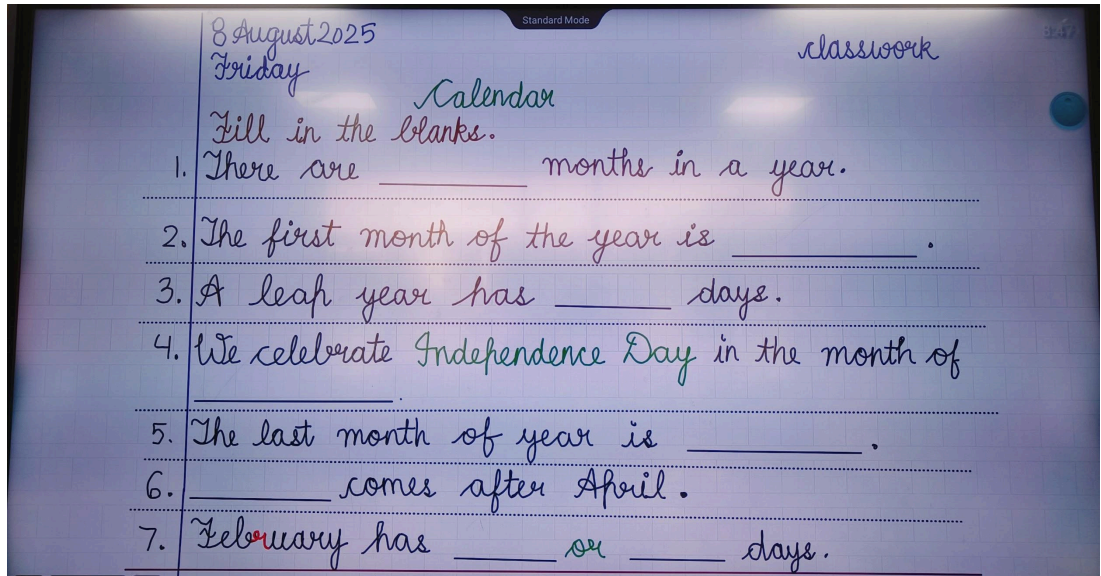 Standard Mode
8 August 2025
classwork
Friday
Calendar
Fill in the blanks.
1. There are ________ months in a year.
2. The first month of the year is __________ .
3. A leap year has ______ days.
4. We celebrate Independence Day in the month of
___________ .
5. The last month of year is __________ .
6. ________ comes after April.
7. February has ______ or ______ days.